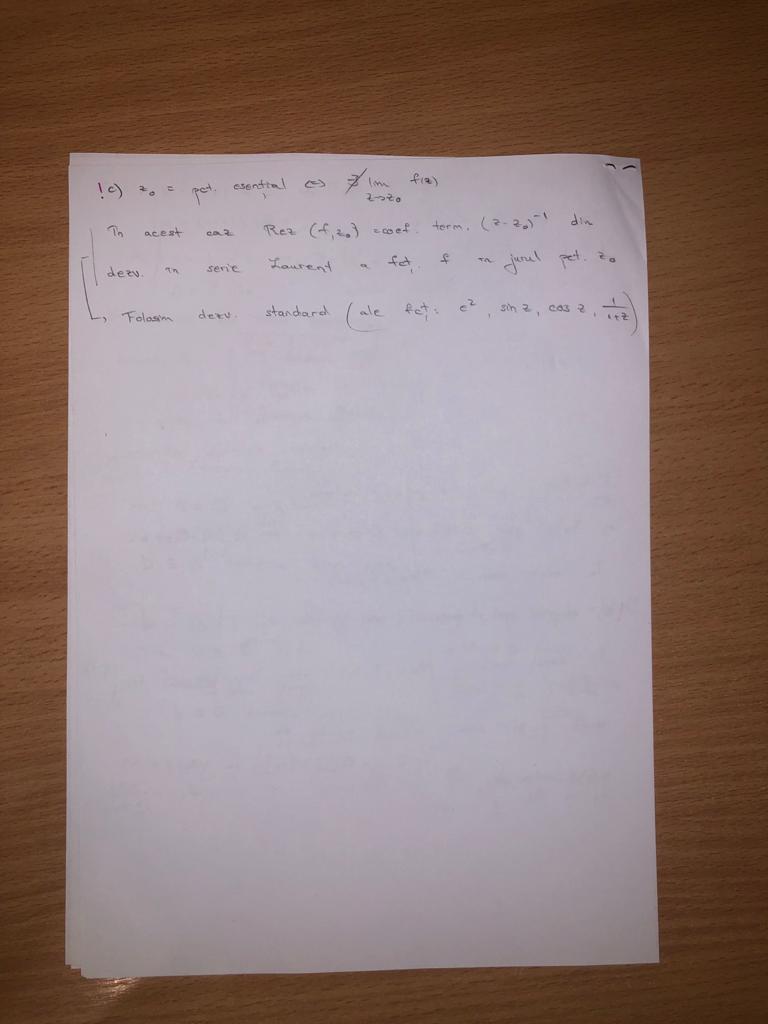 ! c) z₀ = pct. esențial ⇔ ∄ lim f(z)
z→z₀
În acest caz Rez (f, z₀) = coef. term. (z - z₀)⁻¹ din
dezv. în serie Laurent a fct. f în jurul pct. z₀
↳ Folosim dezv. standard (ale fct: e^z, sin z, cos z, 1/(1+z))